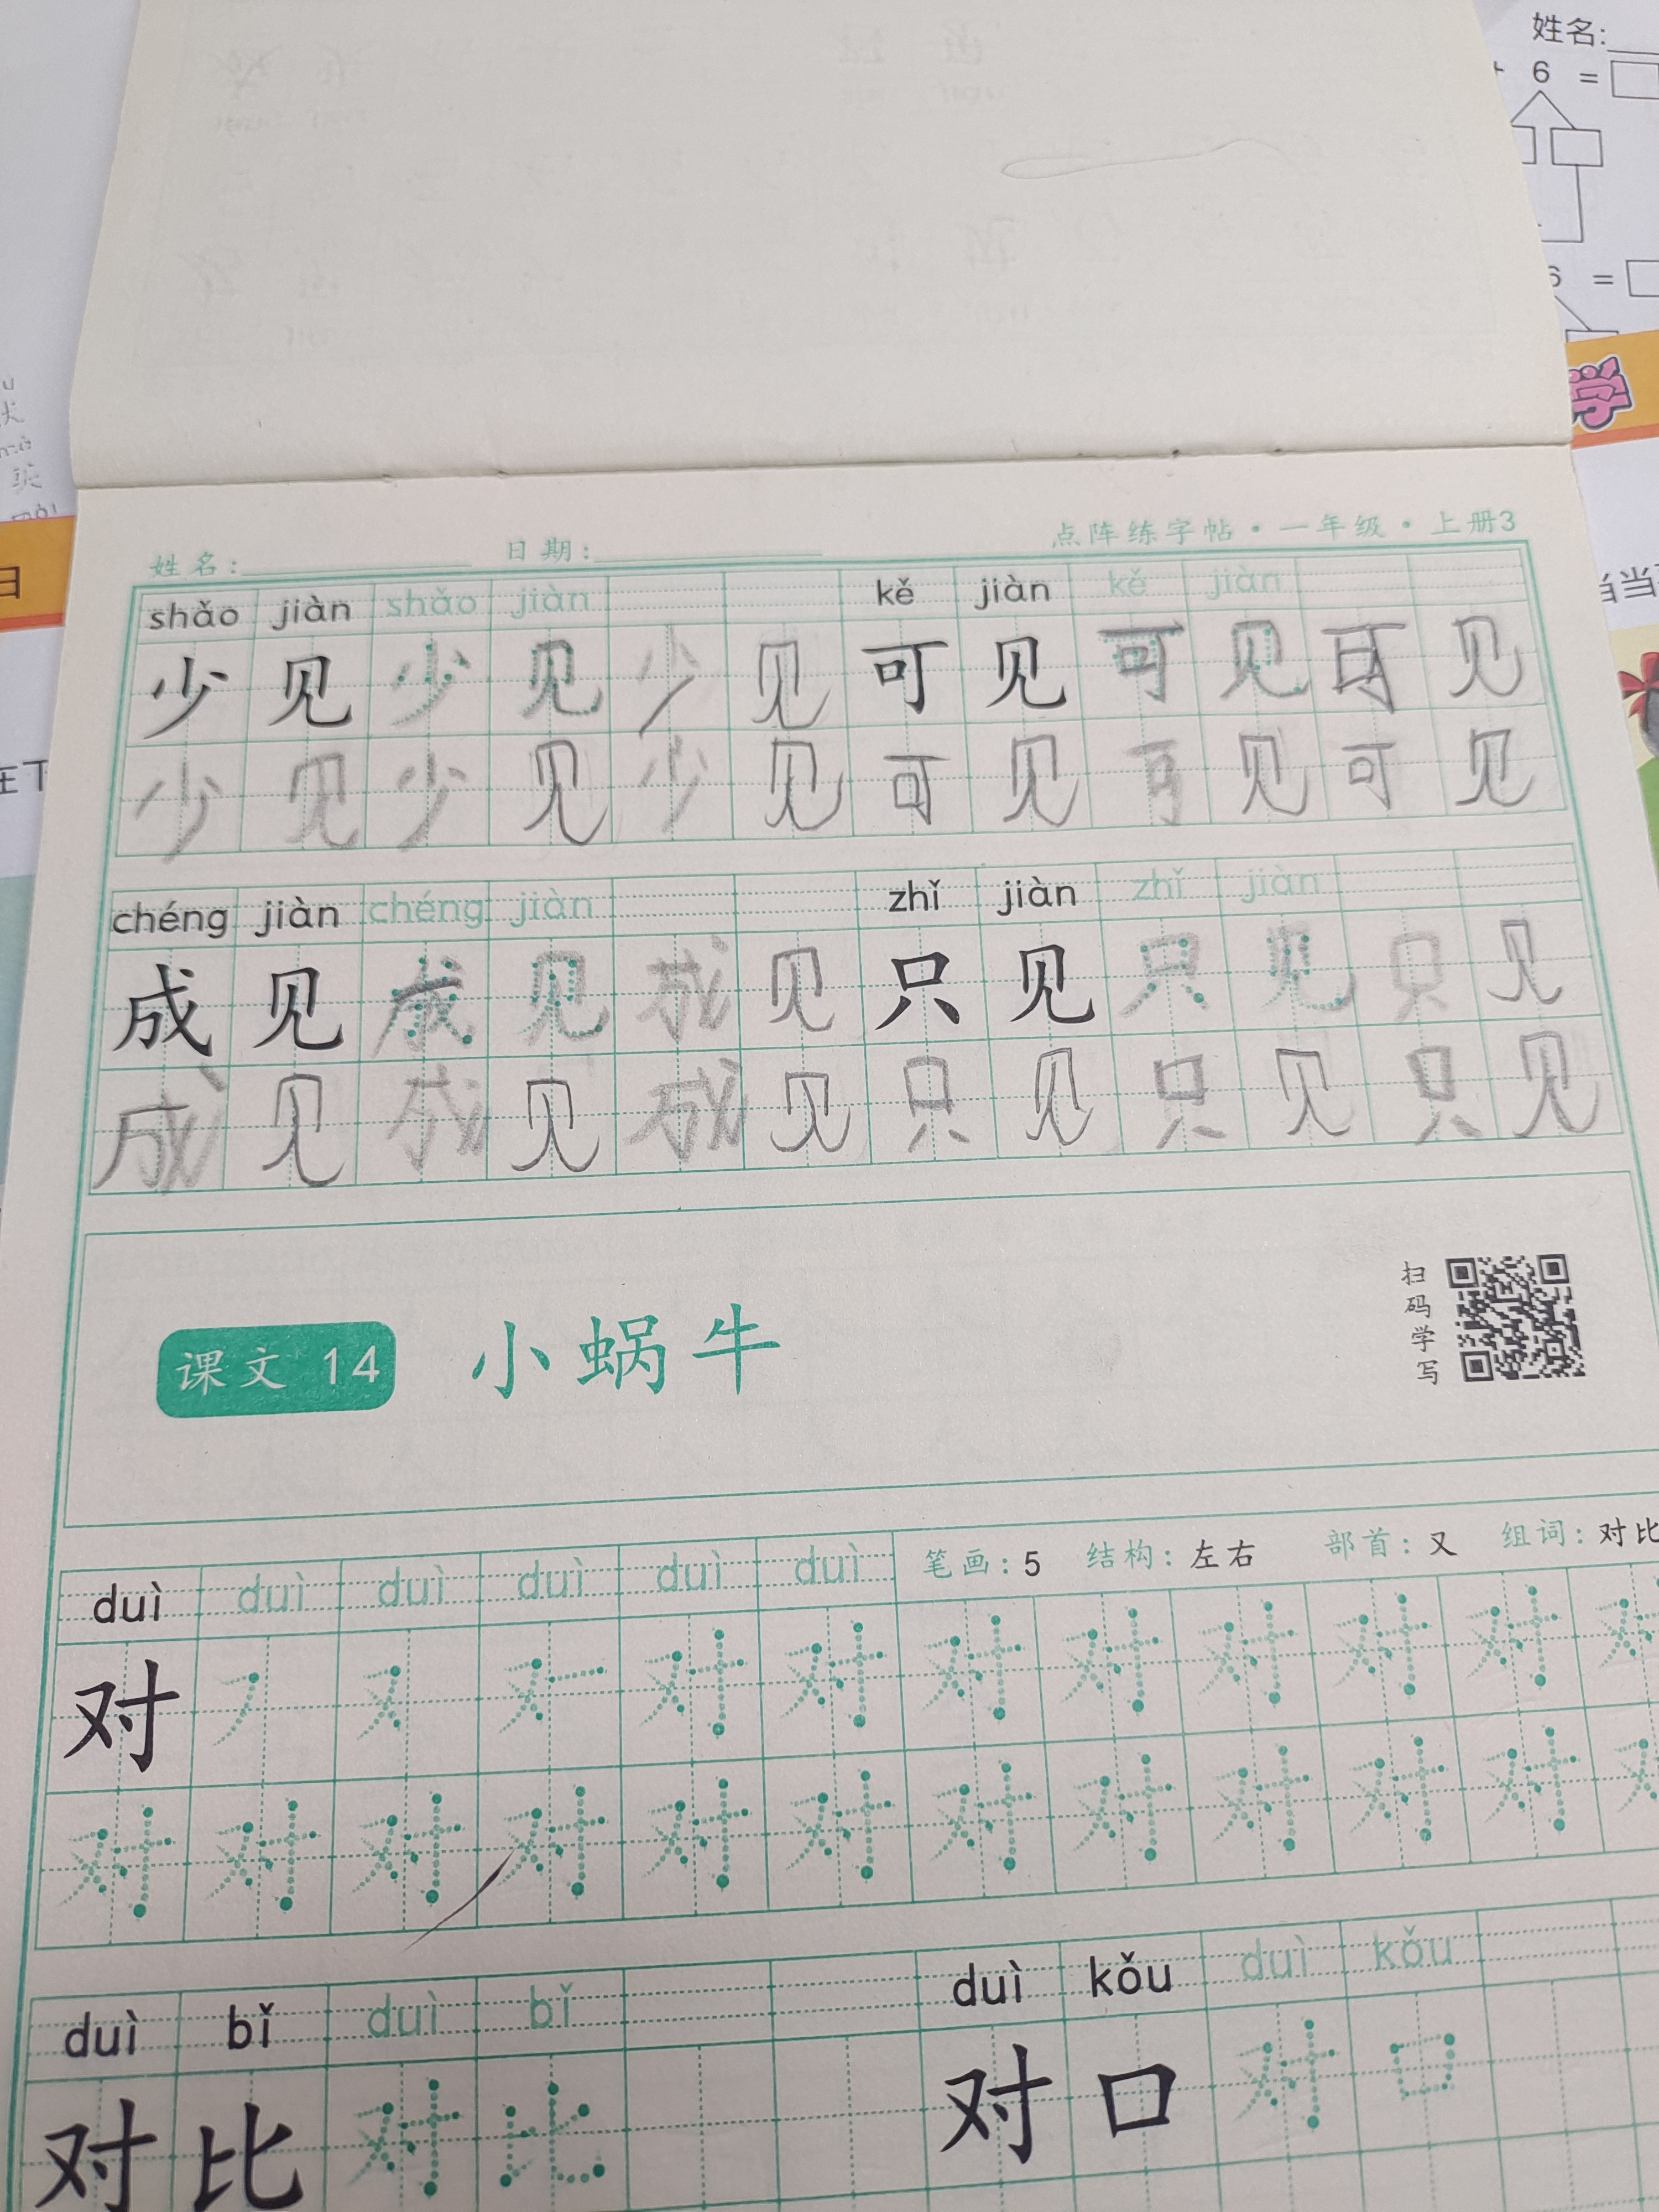 姓名:
+ 6 =
6 =
学
当当
日
在下
姓名: 日期: 点阵练字帖·一年级·上册3
shǎo jiàn shǎo jiàn kě jiàn kě jiàn
少见少见少见可见可见可见
少见少见少见可见可见可见
chéng jiàn chéng jiàn zhǐ jiàn zhǐ jiàn
成见成见成见只见只见只见
成见成见成见只见只见只见
课文 14 小蜗牛
扫码学写
duì duì duì duì duì duì 笔画:5 结构:左右 部首:又 组词:对比
对 对对对对对对对对
对对对对对对对对对对对对
duì bǐ duì bǐ duì kǒu duì kǒu
对比对比 对口对口